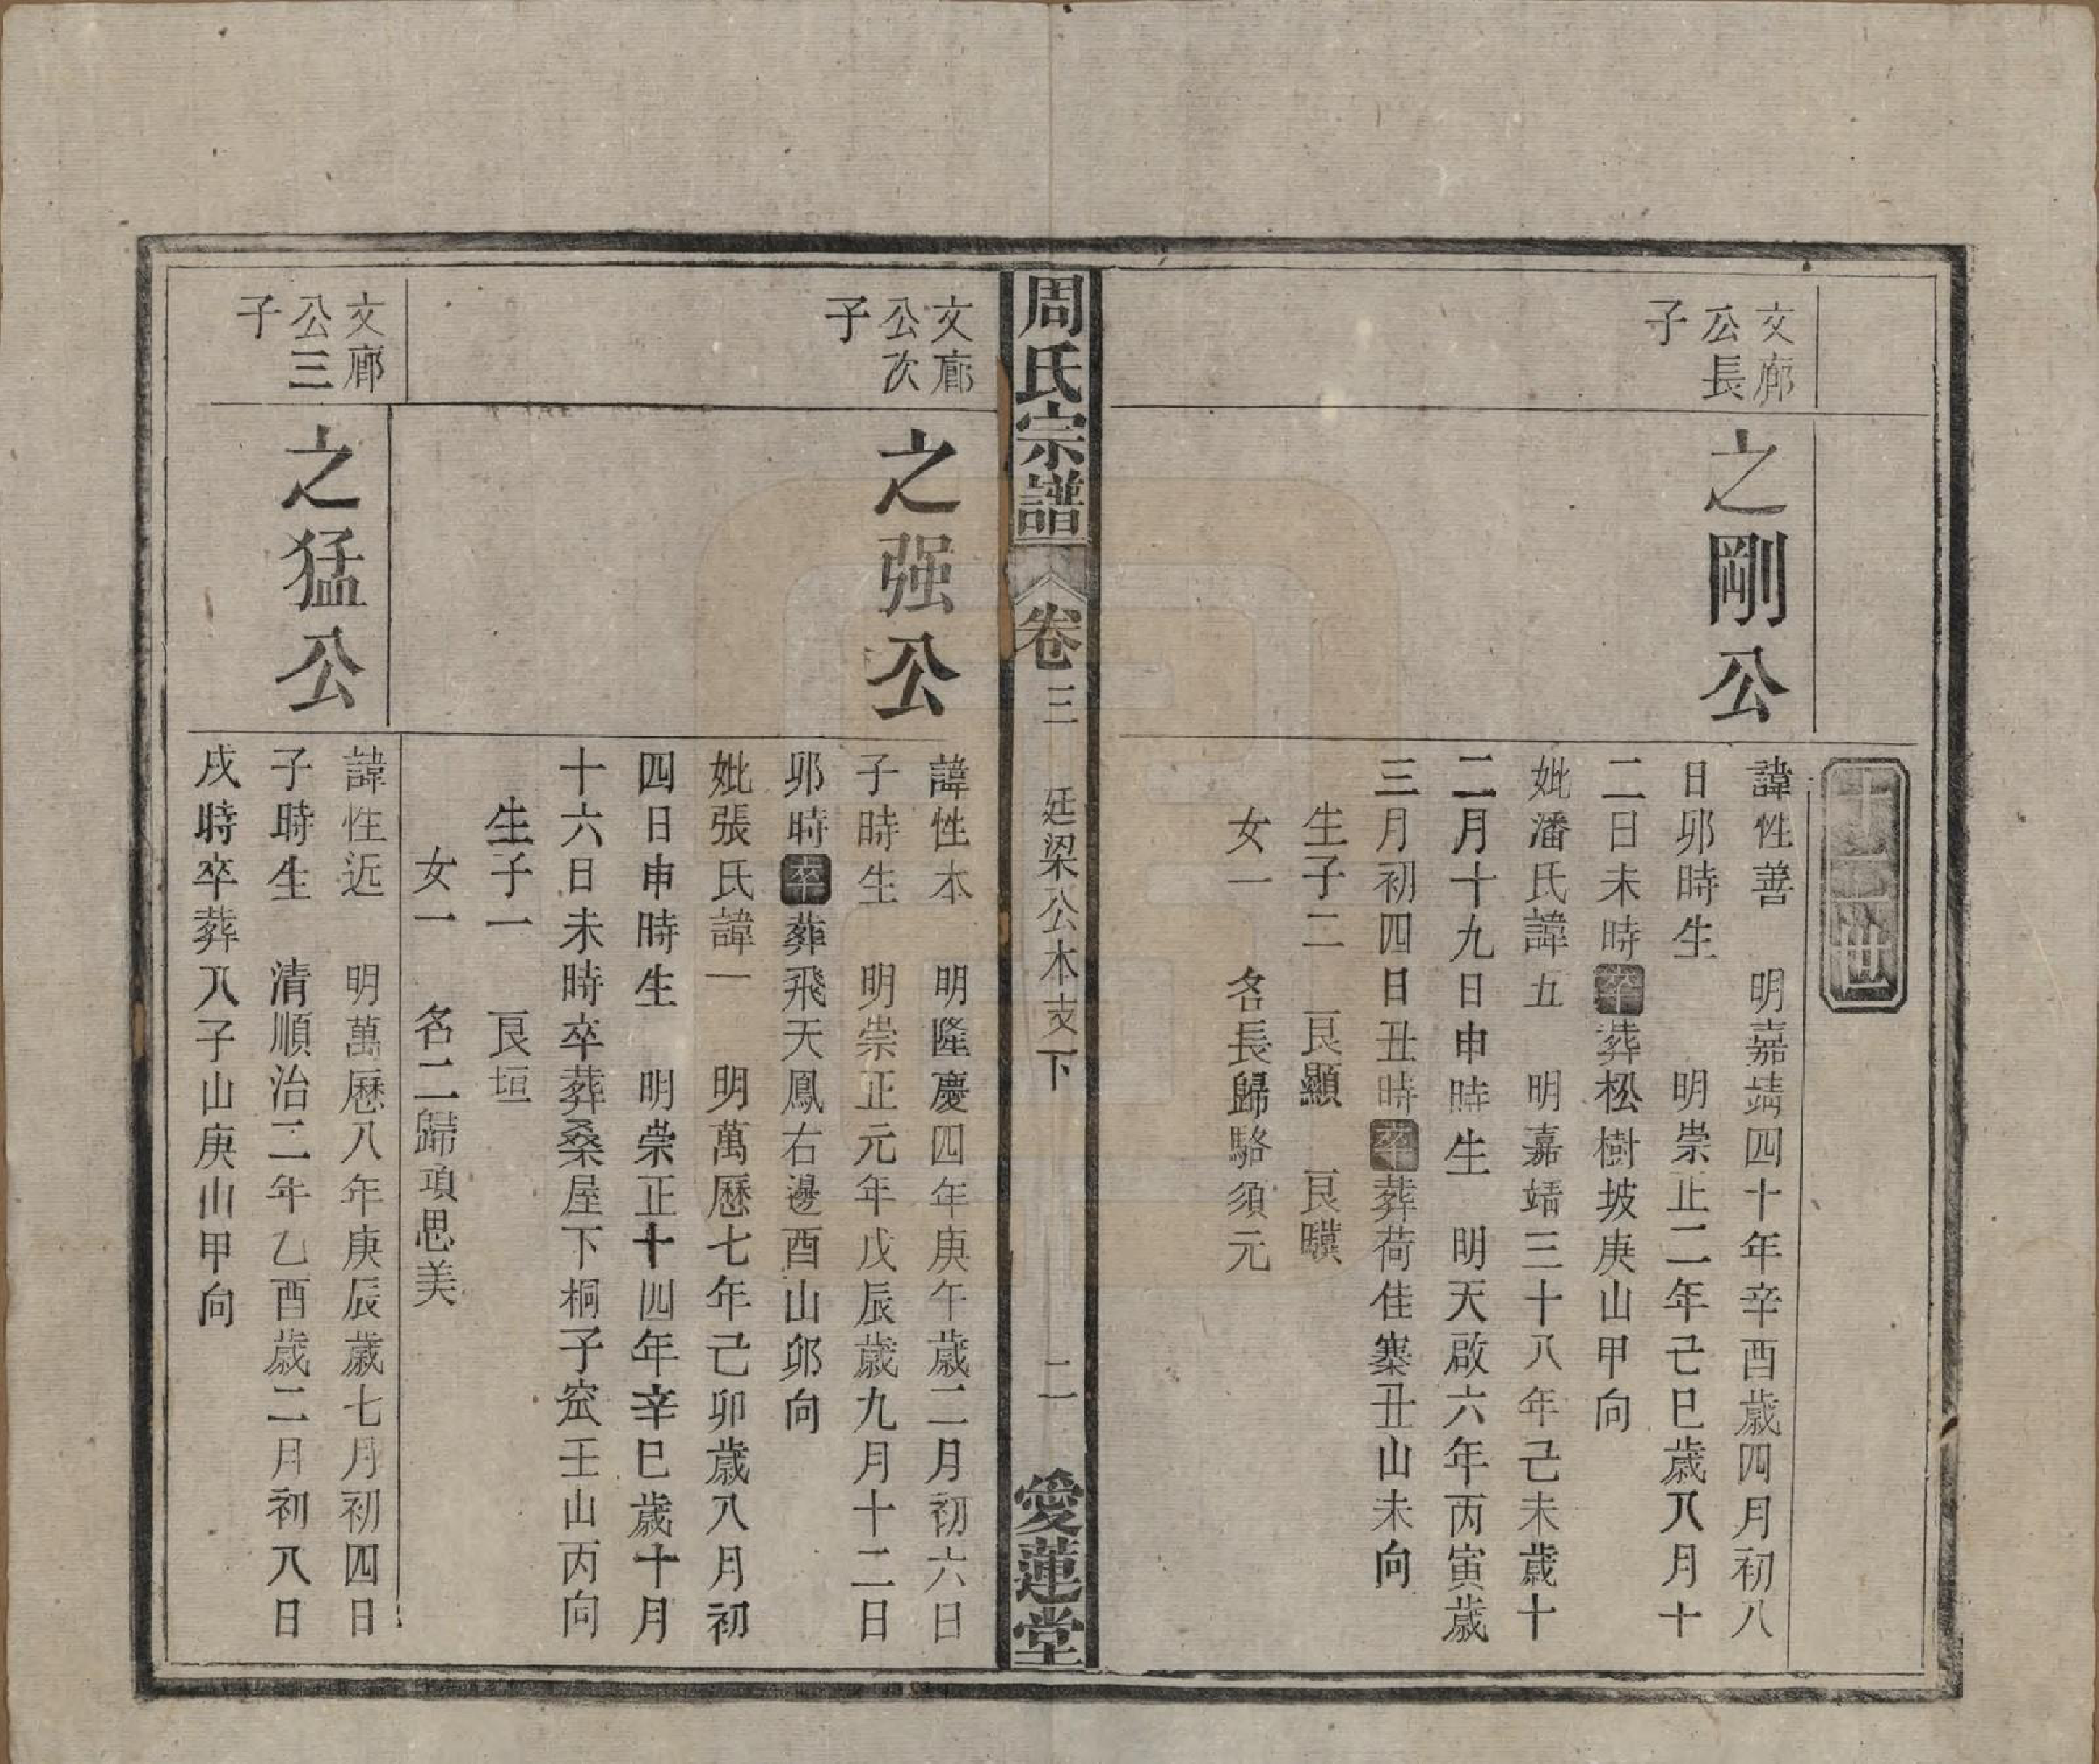 十二世
文廊
公長
子
之剛公
諱性善　明嘉靖四十年辛酉歲四月初八
日卯時生　明崇正二年己巳歲八月十
二日未時卒葬松樹坡庚山甲向
妣潘氏諱五　明嘉靖三十八年己未歲十
二月十九日申時生　明天啟六年丙寅歲
三月初四日丑時卒葬荷佳寨丑山未向
生子二　艮顯　艮驥
女一　名長歸駱須元
周氏宗譜　卷三　廷梁公木支下　二　愛蓮堂
文廊
公次
子
之强公
諱性本　明隆慶四年庚午歲二月初六日
子時生　明崇正元年戊辰歲九月十二日
卯時卒葬飛天鳳右邊酉山卯向
妣張氏諱一　明萬歷七年己卯歲八月初
四日申時生　明崇正十四年辛巳歲十月
十六日未時卒葬桑屋下桐子壬山丙向
生子一　艮垣
女一　名二歸項思美
文廊
公三
子
之猛公
諱性近　明萬歷八年庚辰歲七月初四日
子時生　清順治二年乙酉歲二月初八日
戌時卒葬八子山庚山甲向